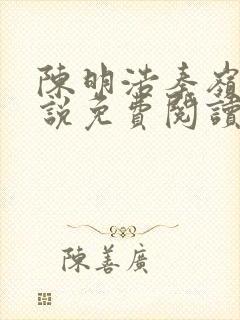 陳明浩秦嶺
說免費閱讀
陳善廣